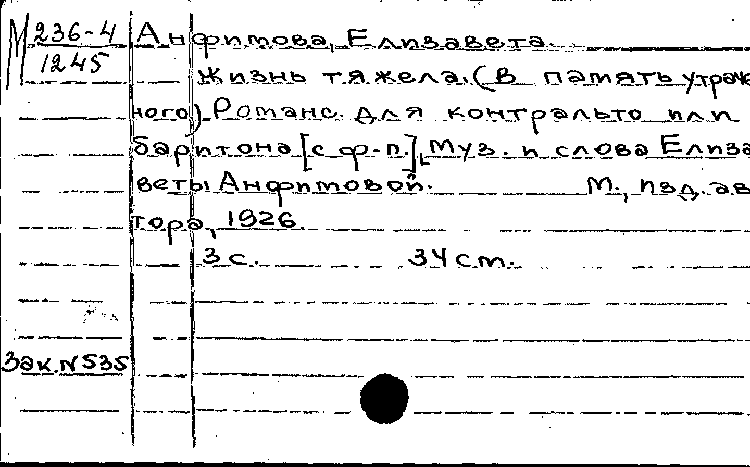 М 236-4 Анфимова, Елизавета
1245
Жизнь тяжела. (В память утрачен
ного). Романс для контральто или
баритона [с ф-п.], Муз. и слова Елиза
веты Анфимовой. М., изд. ав
тора, 1926.
3 с. 34 cm.
Зак. N 535